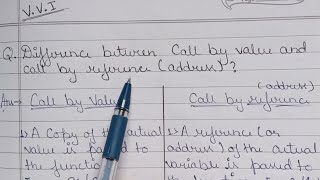 V.V.I
Q. Difference between Call by value and
call by reference (address)?
(address)
Ans→ Call by Value
Call by reference
→ A Copy of the actual
value is passed to
the function
→ A reference (or
address) of the actual
variable is passed to